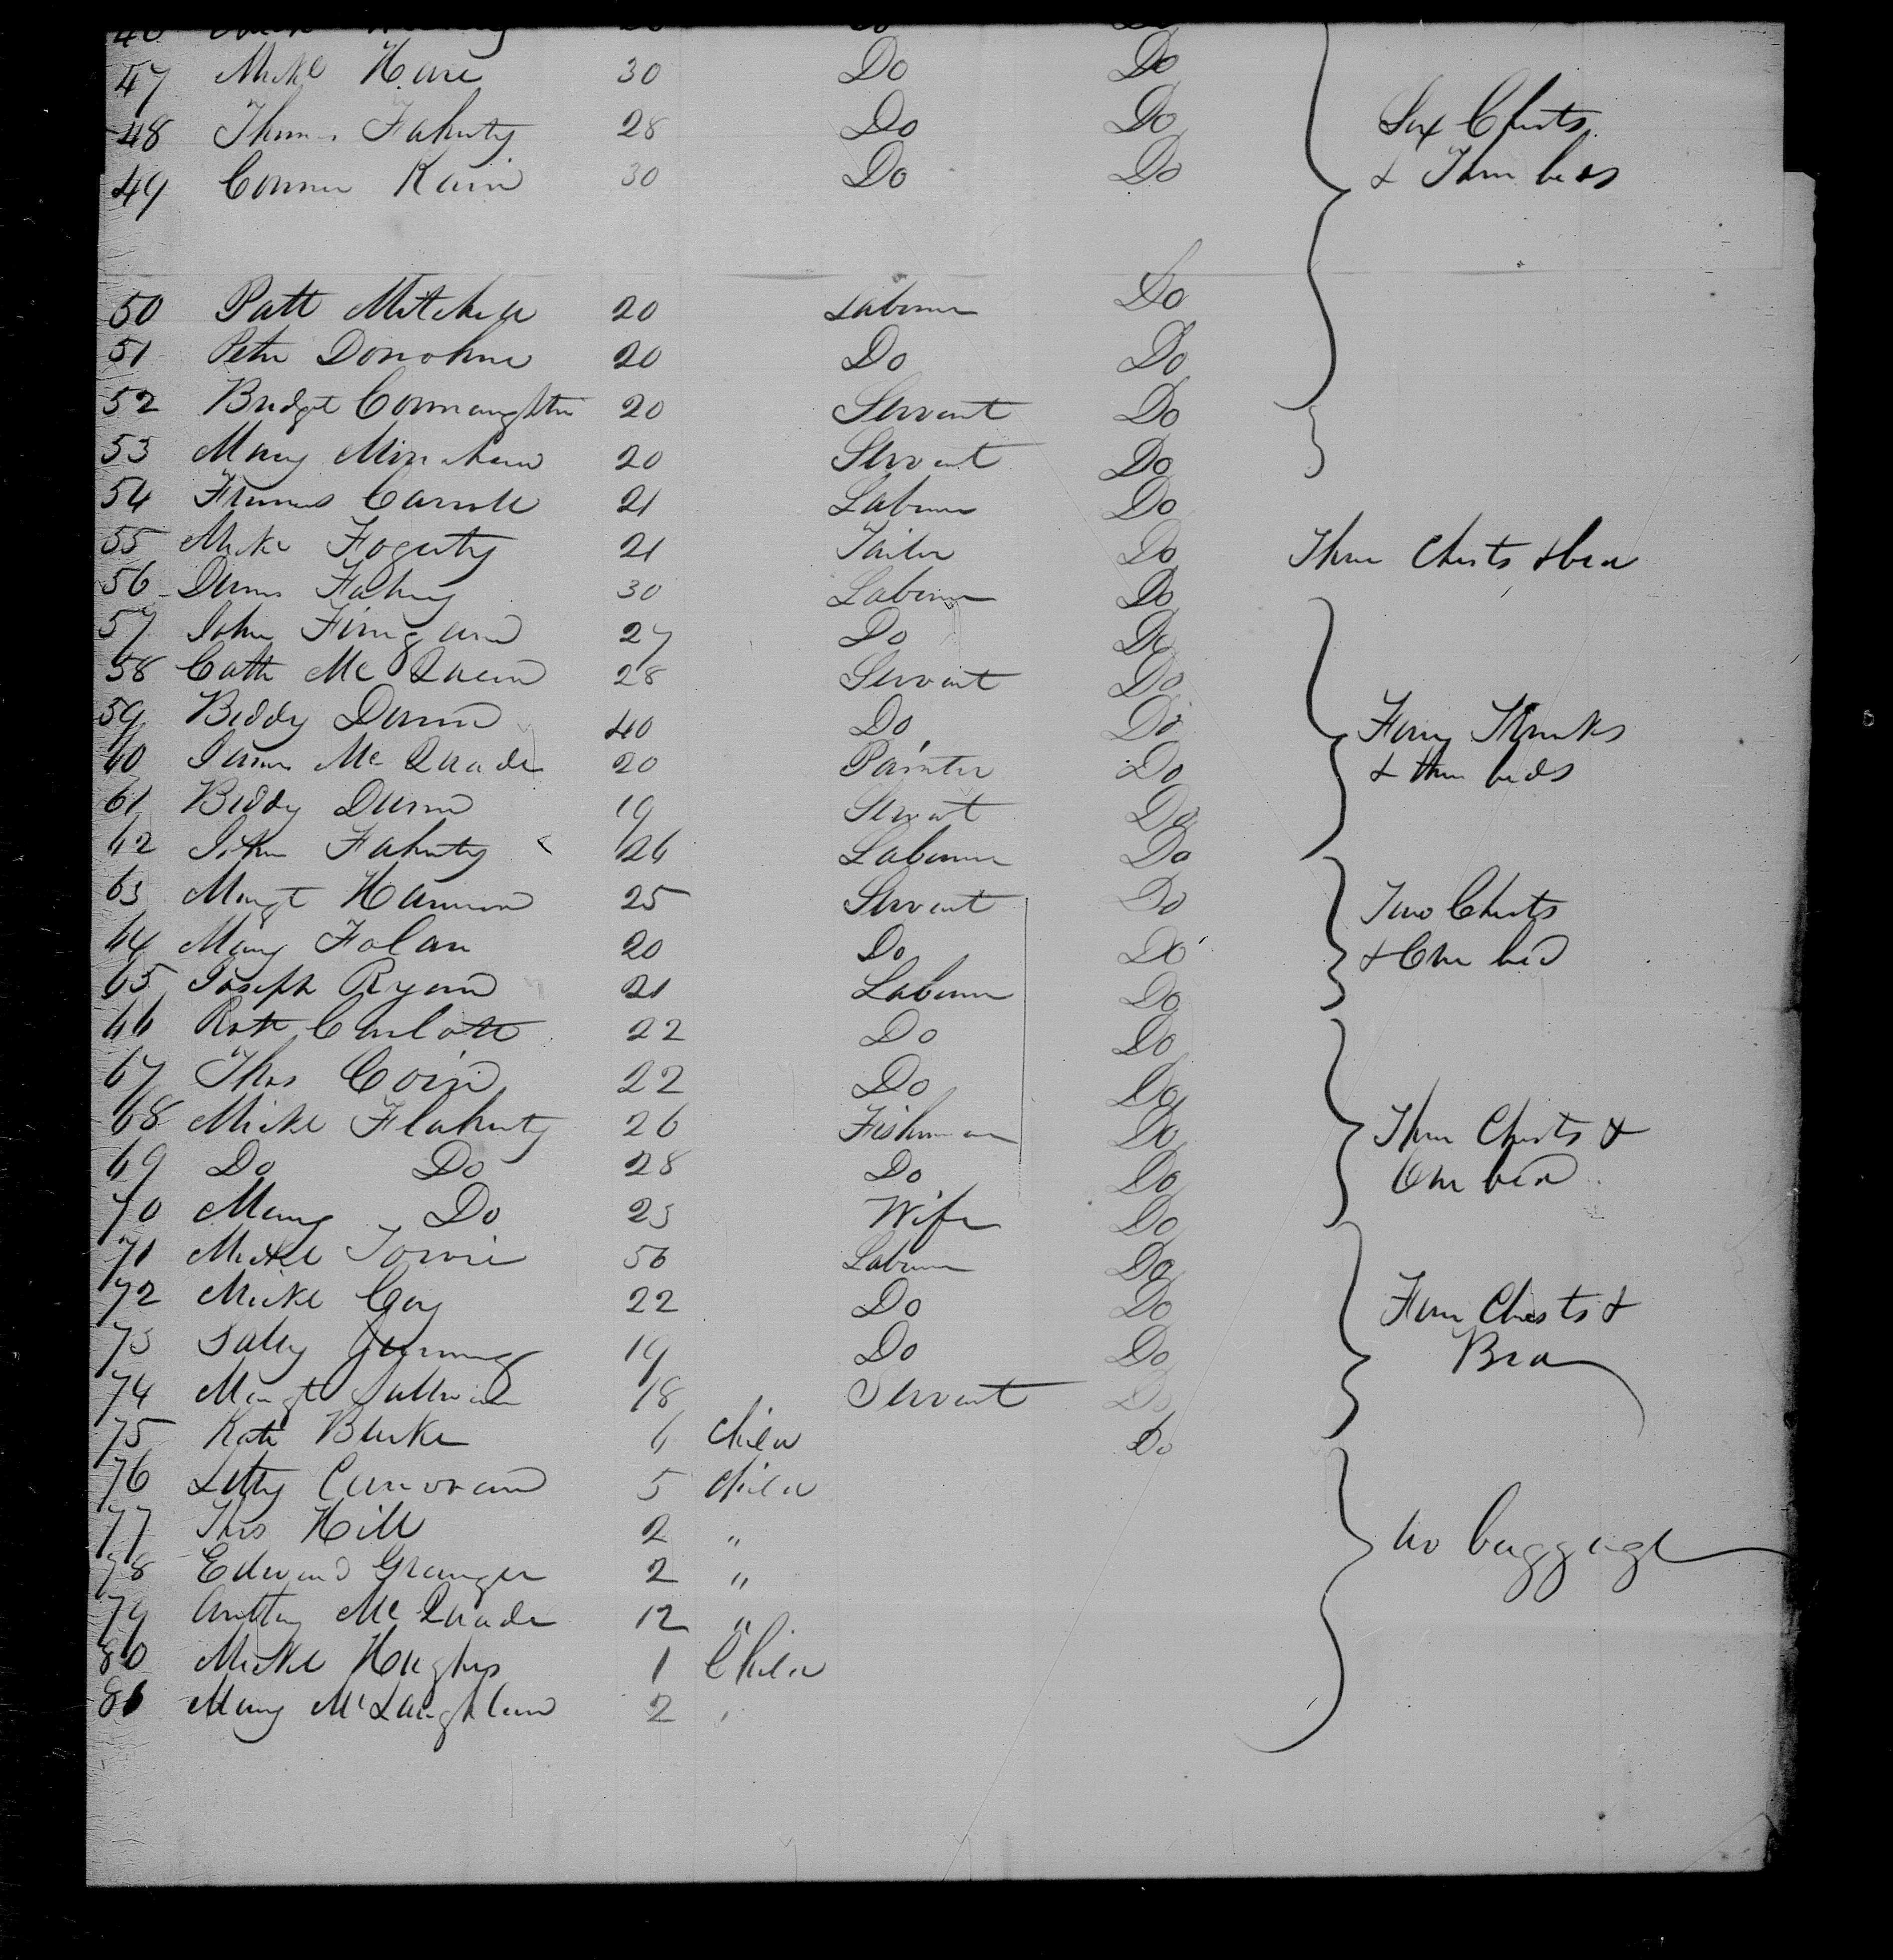 47 Mickl Hare 30 Do Do
48 Thomas Fahurty 28 Do Do Six Chests
49 Conner Kain 30 Do Do & Three beds
50 Patt Mitchell 20 Labourer Do
51 Peter Donohue 20 Do Do
52 Bridget Connaughton 20 Servant Do
53 Mary 20 Servant Do
54 Carroll 21 Labourer Do
55 Mickl Fogerty 21 Tailor Do Three Chests & bed
56 Dennis Fahey 30 Labourer Do
57 John Finigan 27 Do Do
58 Cath Mc Quein 28 Servant Do
59 Biddy Dunn 40 Do Do Trunks
60 James Mc Quade 20 Painter Do & three beds
61 Biddy Dunn 19 Servant Do
62 John Fahurty 26 Labourer Do
63 Margt Hannon 25 Servant Do Two Chests
64 Mary Folan 20 Do Do & One bed
65 Joseph Ryan 21 Labourer Do
66 22 Do Do
67 Thos Coin 22 Do Do
68 Mickl Flahurty 26 Fisherman Do Three Chests &
69 Do Do 28 Do Do One bed
70 Mary Do 25 Wife Do
71 Mickl 56 Labourer Do
72 Mickl Coy 22 Do Do Four Chests &
73 19 Do Do Bed
74 Margt Sullivan 18 Servant Do
75 Kate Burke 6 child Do
76 Letty 5 child
77 Thos Hill 2 "
78 Edward Granger 2 " no baggage
79 Anthony Mc Quade 12 "
80 Mickl Hughes 1 Child
81 Mary McLaughlan 2 "